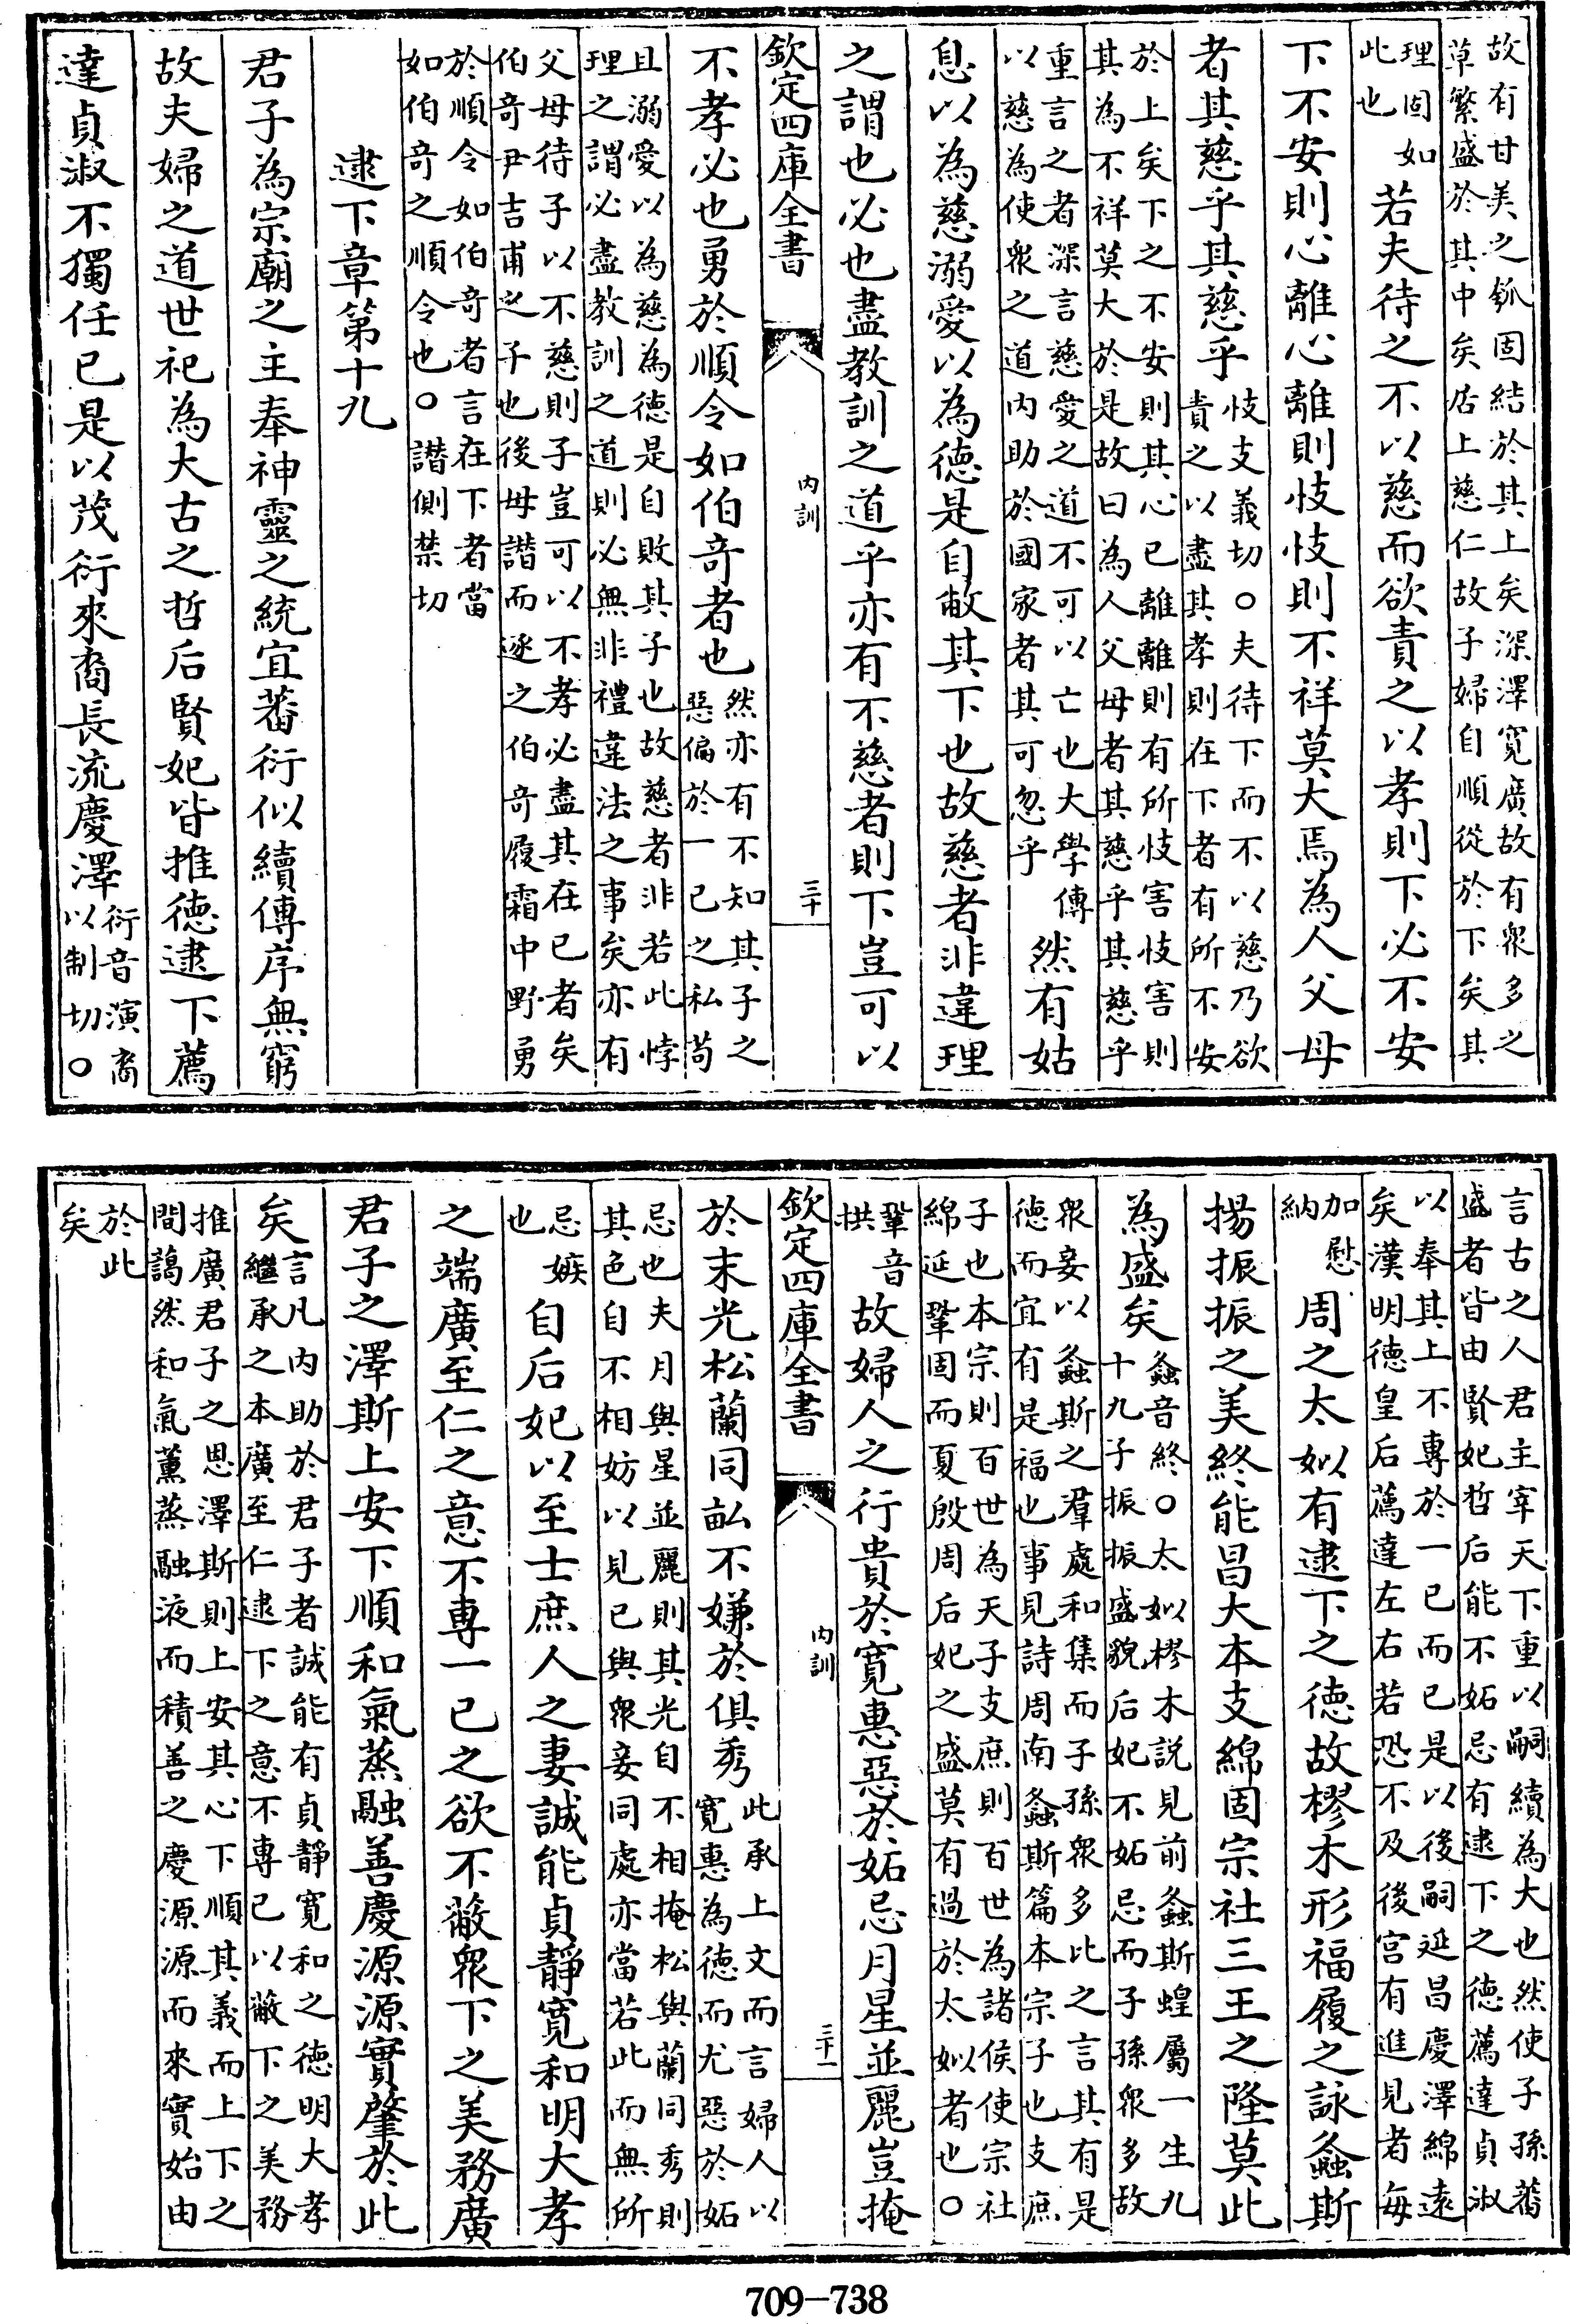 故有甘美之瓠固結於其上矣深澤寛廣故有衆多之
草繁盛於其中矣居上慈仁故子婦自順從於下矣其
理固如
此也
若夫待之不以慈而欲責之以孝則下必不安
下不安則心離心離則忮忮則不祥莫大焉為人父母
者其慈乎其慈乎
忮支義切○夫待下而不以慈乃欲
責之以盡其孝則在下者有所不安
於上矣下之不安則其心已離離則有所忮害忮害則
其為不祥莫大於是故曰為人父母者其慈乎其慈乎
重言之者深言慈愛之道不可以亡也大學傳
以慈為使衆之道内助於國家者其可忽乎
然有姑
息以為慈溺愛以為德是自敝其下也故慈者非違理
之謂也必也盡教訓之道乎亦有不慈者則下豈可以
欽定四庫全書
内訓
三十
不孝必也勇於順令如伯奇者也
然亦有不知其子之
惡偏於一已之私苟
且溺愛以為慈為德是自敗其子也故慈者非若此悖
理之謂必盡教訓之道則必無非禮違法之事矣亦有
父母待子以不慈則子豈可以不孝必盡其在已者矣
伯奇尹吉甫之子也後母譖而逐之伯奇履霜中野勇
於順令如伯奇者言在下者當
如伯奇之順令也○譖側禁切
逮下章第十九
君子為宗廟之主奉神靈之統宜蕃衍似續傳序無窮
故夫婦之道世祀為大古之哲后賢妃皆推德逮下薦
達貞淑不獨任已是以茂衍來裔長流慶澤
衍音演裔
以制切○
言古之人君主宰天下重以嗣續為大也然使子孫蕃
盛者皆由賢妃哲后能不妬忌有逮下之德薦達貞淑
以奉其上不專於一已而已是以後嗣延昌慶澤綿遠
矣漢明德皇后薦達左右若恐不及後宫有進見者每
加慰
納
周之太姒有逮下之德故樛木形福履之詠螽斯
揚振振之美終能昌大本支綿固宗社三王之隆莫此
為盛矣
螽音終○太姒樛木説見前螽斯蝗屬一生九
十九子振振盛貌后妃不妬忌而子孫衆多故
衆妾以螽斯之羣處和集而子孫衆多比之言其有是
德而宜有是福也事見詩周南螽斯篇本宗子也支庶
子也本宗則百世為天子支庶則百世為諸侯使宗社
綿延鞏固而夏殷周后妃之盛莫有過於太姒者也○
鞏音
拱
故婦人之行貴於寛惠惡於妬忌月星並麗豈掩
欽定四庫全書
内訓
三十一
於末光松蘭同畝不嫌於俱秀
此承上文而言婦人以
寛惠為德而尤惡於妬
忌也夫月與星並麗則其光自不相掩松與蘭同秀則
其色自不相妨以見已與衆妾同處亦當若此而無所
忌嫉
也
自后妃以至士庶人之妻誠能貞靜寛和明大孝
之端廣至仁之意不專一已之欲不敝衆下之美務廣
君子之澤斯上安下順和氣蒸融善慶源源實肇於此
矣
言凡内助於君子者誠能有貞靜寛和之德明大孝
繼承之本廣至仁逮下之意不專已以敝下之美務
推廣君子之恩澤斯則上安其心下順其義而上下之
間藹然和氣薰蒸融液而積善之慶源源而來實始由
於此
矣
709-738